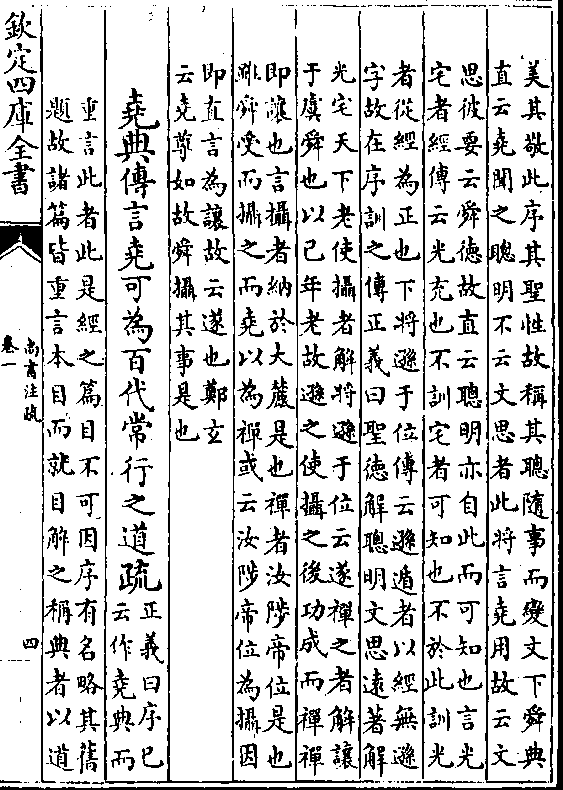 美其敬此序其聖性故稱其聰隨事而變文下舜典
直云堯聞之聰明不云文思者此將言堯用故云文
思彼要云舜德故直云聰明亦自此而可知也言光
宅者經傳云光充也不訓宅者可知也不於此訓光
者從經為正也下將遜于位傳云遜遁者以經無遜
字故在序訓之傳正義曰聖德解聰明文思遠著解
光宅天下老使攝者解將遜于位云遂禪之者解讓
于虞舜也以已年老故遜之使攝之後功成而禪禪
即讓也言攝者納於大麓是也禪者汝陟帝位是也
雖舜受而攝之而堯以為禪或云汝陟帝位為攝因
即直言為讓故云遂也鄭玄
云堯尊如故舜攝其事是也
堯典傳言堯可為百代常行之道疏
正義曰序已
云作堯典而
重言此者此是經之篇目不可因序有名略其舊
題故諸篇皆重言本目而就目解之稱典者以道
欽定四庫全書
尚書注疏
卷一
四